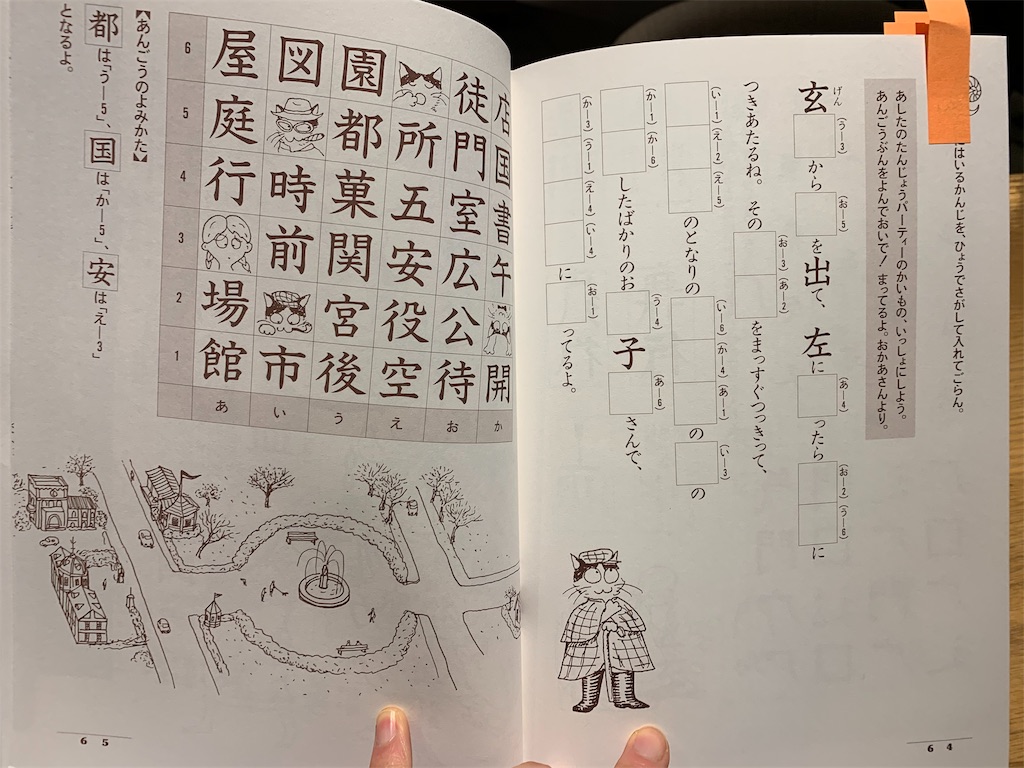 にはいるかんじを、ひょうでさがして入れてごらん。
あしたのたんじょうパーティーのかいもの、いっしょにしよう。
あんごうぶんをよんでおいで！　まってるよ。おかあさんより。
玄（げん）（う—3）から（お—5）を出て、左に（あ—4）ったら（お—2）（う—6）に
つきあたるね。その（お—3）（あ—2）をまっすぐつっきって、
（い—1）（え—2）（え—5）のとなりの（い—6）（か—4）（あ—1）の（い—3）の
（か—1）（か—6）したばかりのお（う—4）子（あ—6）さんで、
（か—3）（う—1）（え—4）（い—4）に（お—1）ってるよ。
64
6 屋 図 園 徒 店
5 庭 都 所 門 国
4 行 時 菓 五 室 書
3 前 関 安 広 午
2 場 宮 役 公
1 館 市 後 空 待 開
あ い う え お か
【あんごうのよみかた】
都は「う—5」、国は「か—5」、安は「え—3」
となるよ。
65